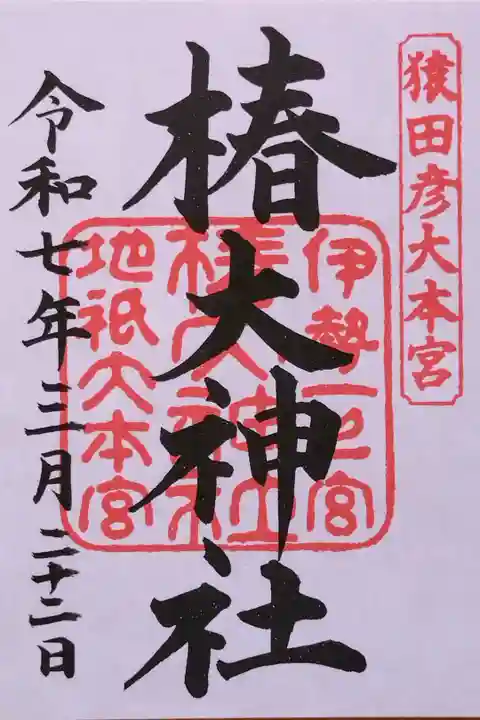 猿田彦大本宮
椿大神社
伊勢一之宮
椿大神社
地祇大本宮
令和七年三月二十二日